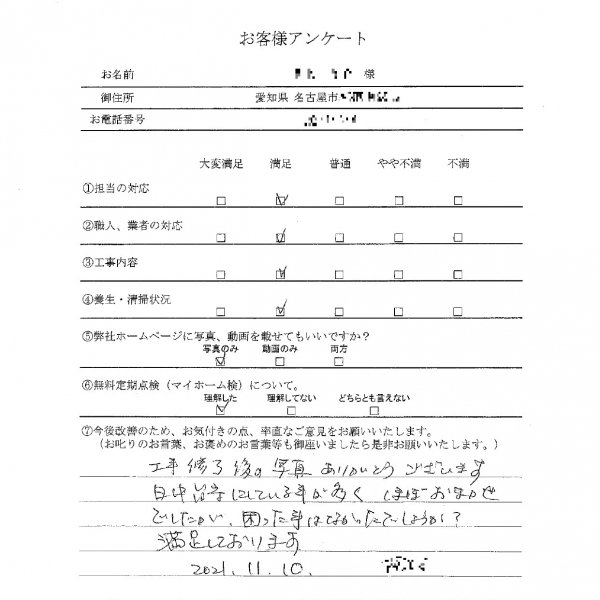 お客様アンケート
お名前 様
御住所 愛知県 名古屋市
お電話番号
大変満足 満足 普通 やや不満 不満
①担当の対応 □ ☑ □ □ □
②職人、業者の対応 □ ☑ □ □ □
③工事内容 □ ☑ □ □ □
④養生・清掃状況 □ ☑ □ □ □
⑤弊社ホームページに写真、動画を載せてもいいですか?
写真のみ 動画のみ 両方
☑ □ □
⑥無料定期点検(マイホーム検)について。
理解した 理解してない どちらとも言えない
☑ □ □
⑦今後改善のため、お気付きの点、率直なご意見をお願いいたします。
(お叱りのお言葉、お褒めのお言葉等も御座いましたら是非お願いいたします。)
工事 修了後の 写真 ありがとう ございます
日中 留守にしている事が多く ほぼおまかせ
でしたが、困った事はなかったでしょうか?
満足しております
2021.11.10.